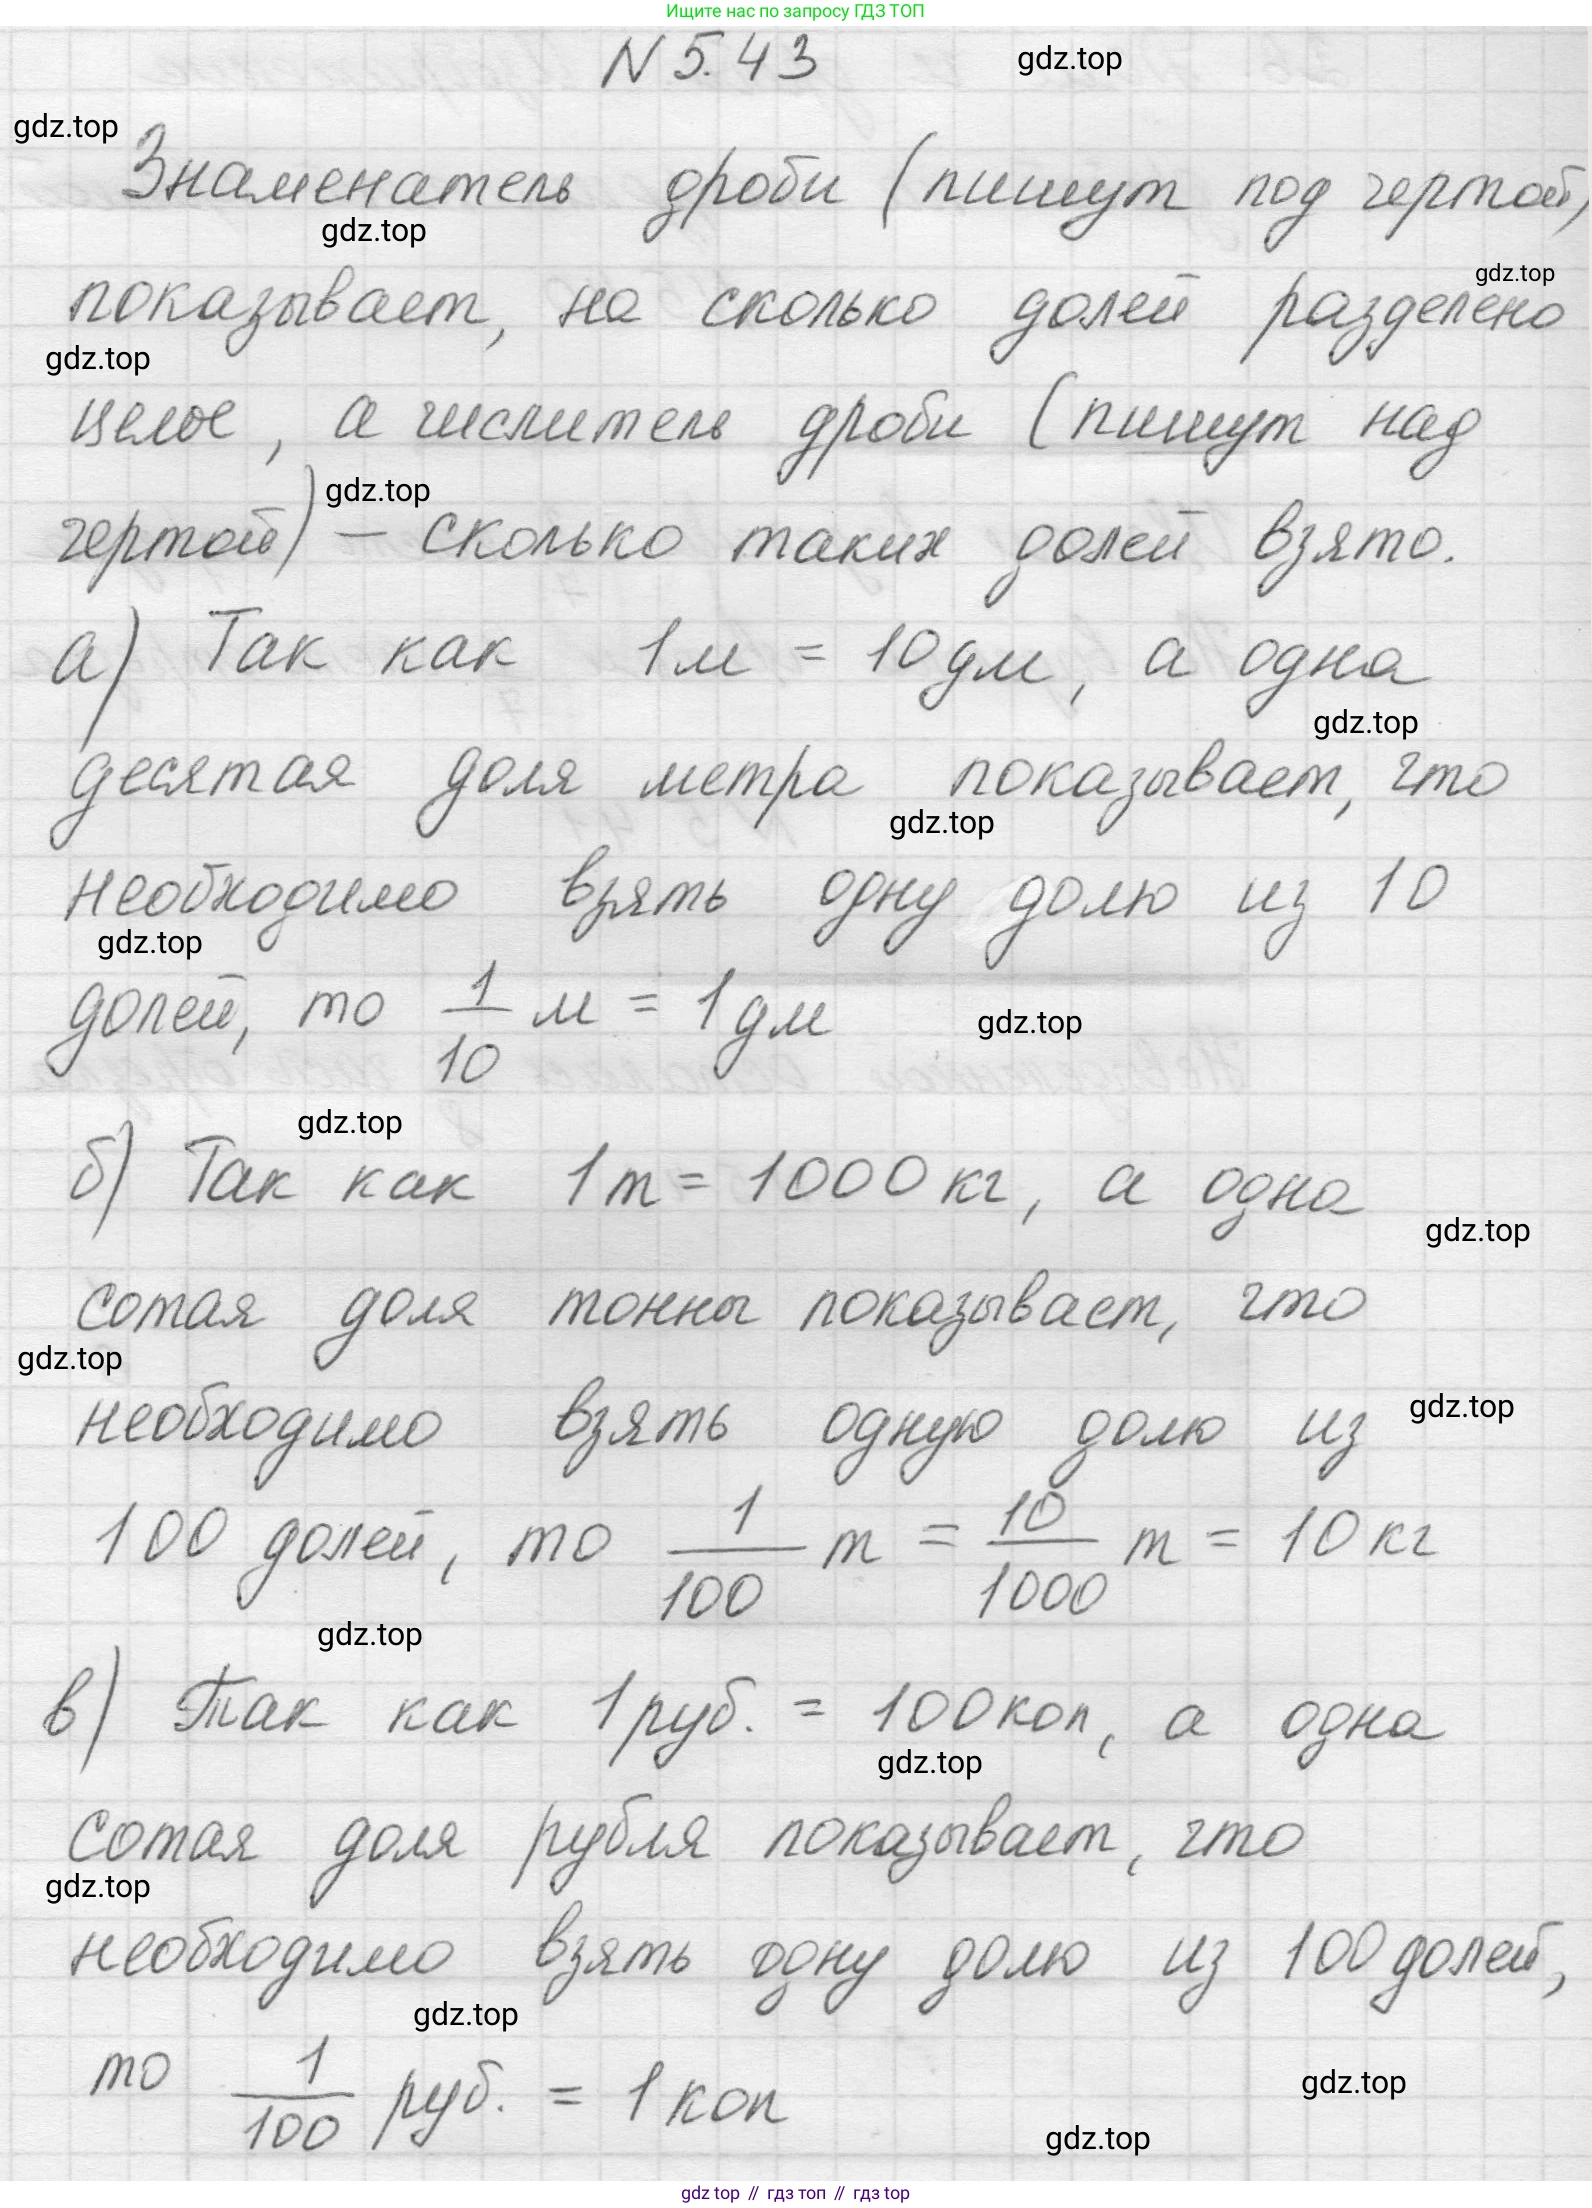 Ищите нас по запросу ГДЗ ТОП
N 5.43
gdz.top
gdz.top
Знаменатель дроби (пишут под чертой,
gdz.top
gdz.top
показывает, на сколько долей разделено
gdz.top
целое, а числитель дроби (пишут над
gdz.top
чертой) – сколько таких долей взято.
а) Так как 1м = 10дм, а одна
gdz.top
десятая доля метра показывает, что
gdz.top
необходимо взять одну долю из 10
gdz.top
долей, то 1/10 м = 1дм
gdz.top
gdz.top
б) Так как 1т = 1000кг, а одна
gdz.top
сотая доля тонны показывает, что
gdz.top
gdz.top
необходимо взять одную долю из
100 долей, то 1/100 т = 10/1000 т = 10кг
gdz.top
в) Так как 1руб. = 100коп, а одна
gdz.top
сотая доля рубля показывает, что
gdz.top
необходимо взять одну долю из 100 долей,
gdz.top
то 1/100 руб. = 1коп
gdz.top
gdz.top
gdz top // гдз топ // гдз top